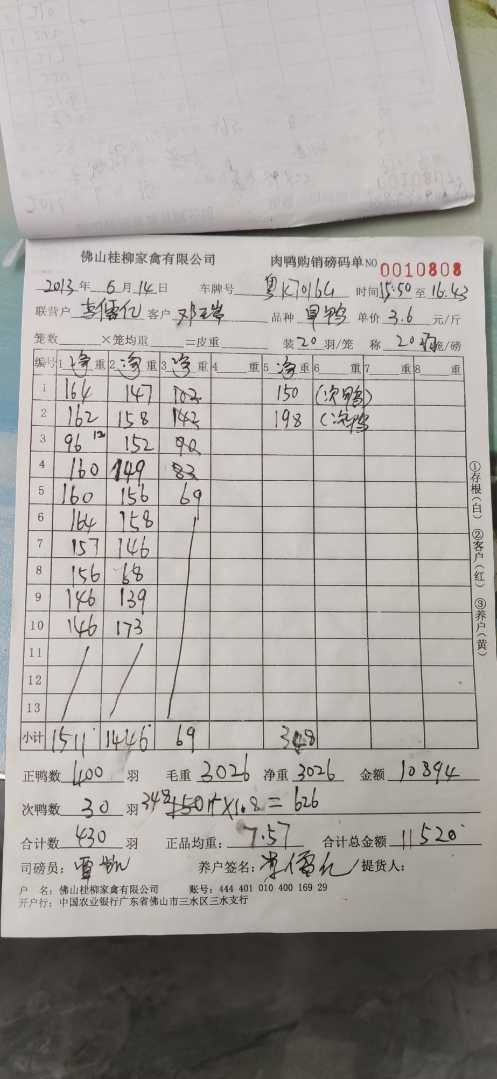 佛山桂柳家禽有限公司 肉鸭购销磅码单 NO 0010808
2013年 6月 14日 车牌号 粤K70164 时间 15:50 至 16.43
联营户 李儒亿 客户 品种 单价 3.6 元/斤
笼数 ×笼均重 =皮重 装 20 羽/笼 称 20 /磅
编号 1 净 重 2 净 重 3 净 重 4 重 5 净 重 6 重 7 重 8 重
1 164 147 102 150 (次鸭)
2 162 158 142 198 (次鸭
3 96 12 152 90
4 160 149 83
5 160 156 69
6 164 158
7 157 146
8 156 68
9 146 139
10 146 173
11
12
13
小计 1511 1446 69 348
正鸭数 400 羽 毛重 3026 净重 3026 金额 10894
次鸭数 30 羽 348 ×1.8= 626
合计数 430 羽 正品均重: 7.57 合计总金额 11520
司磅员: 养户签名: 李儒亿 提货人:
户 名: 佛山桂柳家禽有限公司 账号: 444 401 010 400 169 29
开户行: 中国农业银行广东省佛山市三水区三水支行
①存根(白) ②客户(红) ③养户(黄)